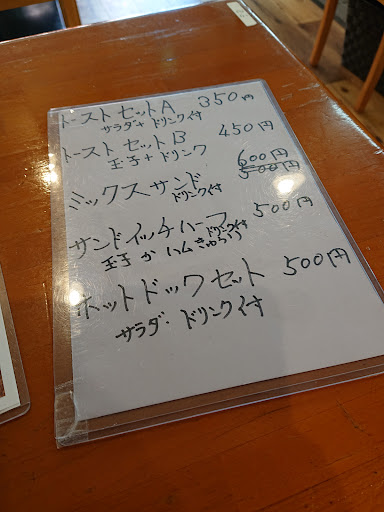 トースト セットA 350円
サラダ+ドリンク付
トースト セットB 450円
玉子+ドリンク
600円
ミックスサンド 500円
ドリンク付
サンドイッチハーフ 500円
ドリンク付
玉子 か ハムきゅうり
ホットドックセット 500円
サラダ・ドリンク付